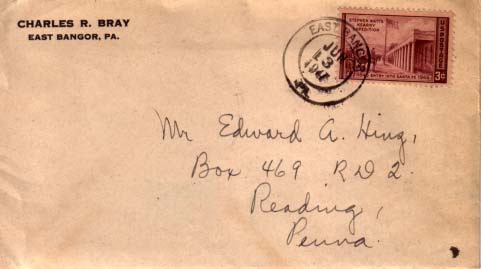 CHARLES R. BRAY
EAST BANGOR, PA.
EAST BANGOR
JUN
3
STEPHEN WATTS
KEARNY
EXPEDITION
U.S. POSTAGE
3¢
ENTRY INTO SANTA FE
Mr Edward A. Hing,
Box 469 R D 2.
Reading,
Penna.